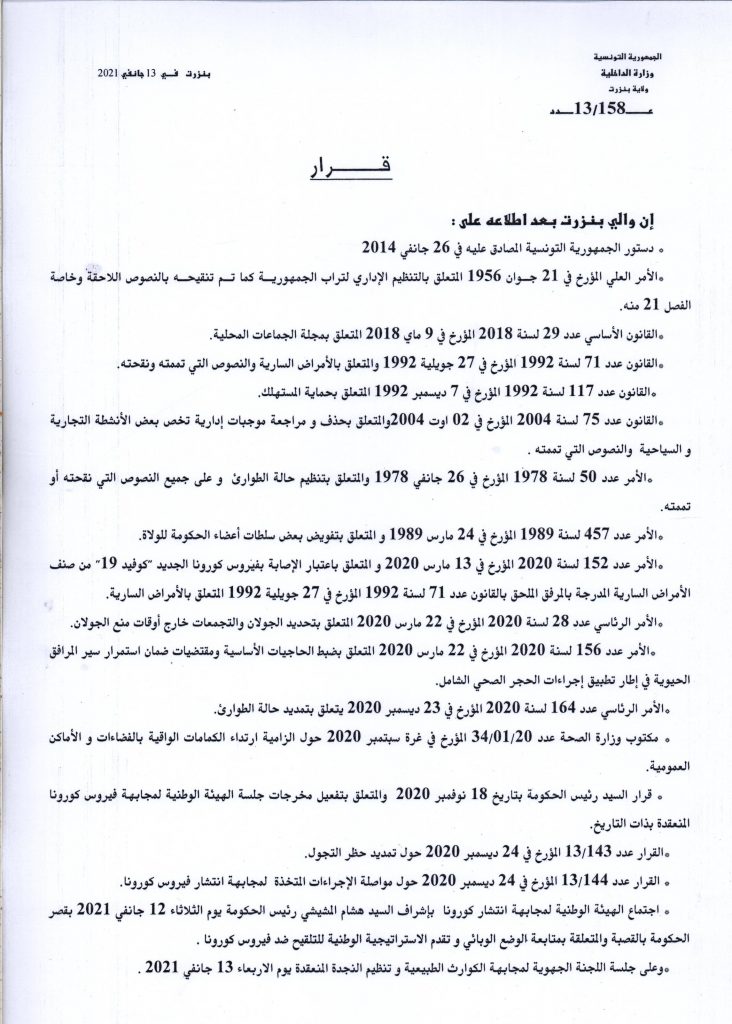 الجمهورية التونسية
وزارة الداخلية
ولاية بنزرت
عـــــ13/158ـــدد
بنزرت في 13 جانفي 2021
قـــــرار
إن والي بنزرت بعد اطلاعه على :
• دستور الجمهورية التونسية المصادق عليه في 26 جانفي 2014
•الأمر العلي المؤرخ في 21 جـوان 1956 المتعلق بالتنظيم الإداري لتراب الجمهوريـة كما تـم تنقيحـه بالنصوص اللاحقة وخاصة
الفصل 21 منه.
•القانون الأساسي عدد 29 لسنة 2018 المؤرخ في 9 ماي 2018 المتعلق بمجلة الجماعات المحلية.
•القانون عدد 71 لسنة 1992 المؤرخ في 27 جويلية 1992 والمتعلق بالأمراض السارية والنصوص التي تممته ونقحته.
•القانون عدد 117 لسنة 1992 المؤرخ في 7 ديسمبر 1992 المتعلق بحماية المستهلك.
•القانون عدد 75 لسنة 2004 المؤرخ في 02 اوت 2004والمتعلق بحذف و مراجعة موجبات إدارية تخص بعض الأنشطة التجارية
و السياحية والنصوص التي تممته .
•الأمر عدد 50 لسنة 1978 المؤرخ في 26 جانفي 1978 والمتعلق بتنظيم حالة الطوارئ و على جميع النصوص التي نقحته أو
تممته.
•الأمر عدد 457 لسنة 1989 المؤرخ في 24 مارس 1989 و المتعلق بتفويض بعض سلطات أعضاء الحكومة للولاة.
•الأمر عدد 152 لسنة 2020 المؤرخ في 13 مارس 2020 و المتعلق باعتبار الإصابة بفيروس كورونا الجديد "كوفيد 19" من صنف
الأمراض السارية المدرجة بالمرفق الملحق بالقانون عدد 71 لسنة 1992 المؤرخ في 27 جويلية 1992 المتعلق بالأمراض السارية.
•الأمر الرئاسي عدد 28 لسنة 2020 المؤرخ في 22 مارس 2020 المتعلق بتحديد الجولان والتجمعات خارج أوقات منع الجولان.
•الأمر عدد 156 لسنة 2020 المؤرخ في 22 مارس 2020 المتعلق بضبط الحاجيات الأساسية ومقتضيات ضمان استمرار سير المرافق
الحيوية في إطار تطبيق إجراءات الحجر الصحي الشامل.
•الأمر الرئاسي عدد 164 لسنة 2020 المؤرخ في 23 ديسمبر 2020 يتعلق بتمديد حالة الطوارئ.
• مكتوب وزارة الصحة عدد 34/01/20 المؤرخ في غرة سبتمبر 2020 حول الزامية ارتداء الكمامات الواقية بالفضاءات و الأماكن
العمومية.
• قرار السيد رئيس الحكومة بتاريخ 18 نوفمبر 2020 والمتعلق بتفعيل مخرجات جلسة الهيئة الوطنية لمجابهة فيروس كورونا
المنعقدة بذات التاريخ.
•القرار عدد 13/143 المؤرخ في 24 ديسمبر 2020 حول تمديد حظر التجول.
• القرار عدد 13/144 المؤرخ في 24 ديسمبر 2020 حول مواصلة الإجراءات المتخذة لمجابهة انتشار فيروس كورونا.
• اجتماع الهيئة الوطنية لمجابهة انتشار كورونا بإشراف السيد هشام المشيشي رئيس الحكومة يوم الثلاثاء 12 جانفي 2021 بقصر
الحكومة بالقصبة والمتعلقة بمتابعة الوضع الوبائي و تقدم الاستراتيجية الوطنية للتلقيح ضد فيروس كورونا .
•وعلى جلسة اللجنة الجهوية لمجابهة الكوارث الطبيعية و تنظيم النجدة المنعقدة يوم الاربعاء 13 جانفي 2021 .